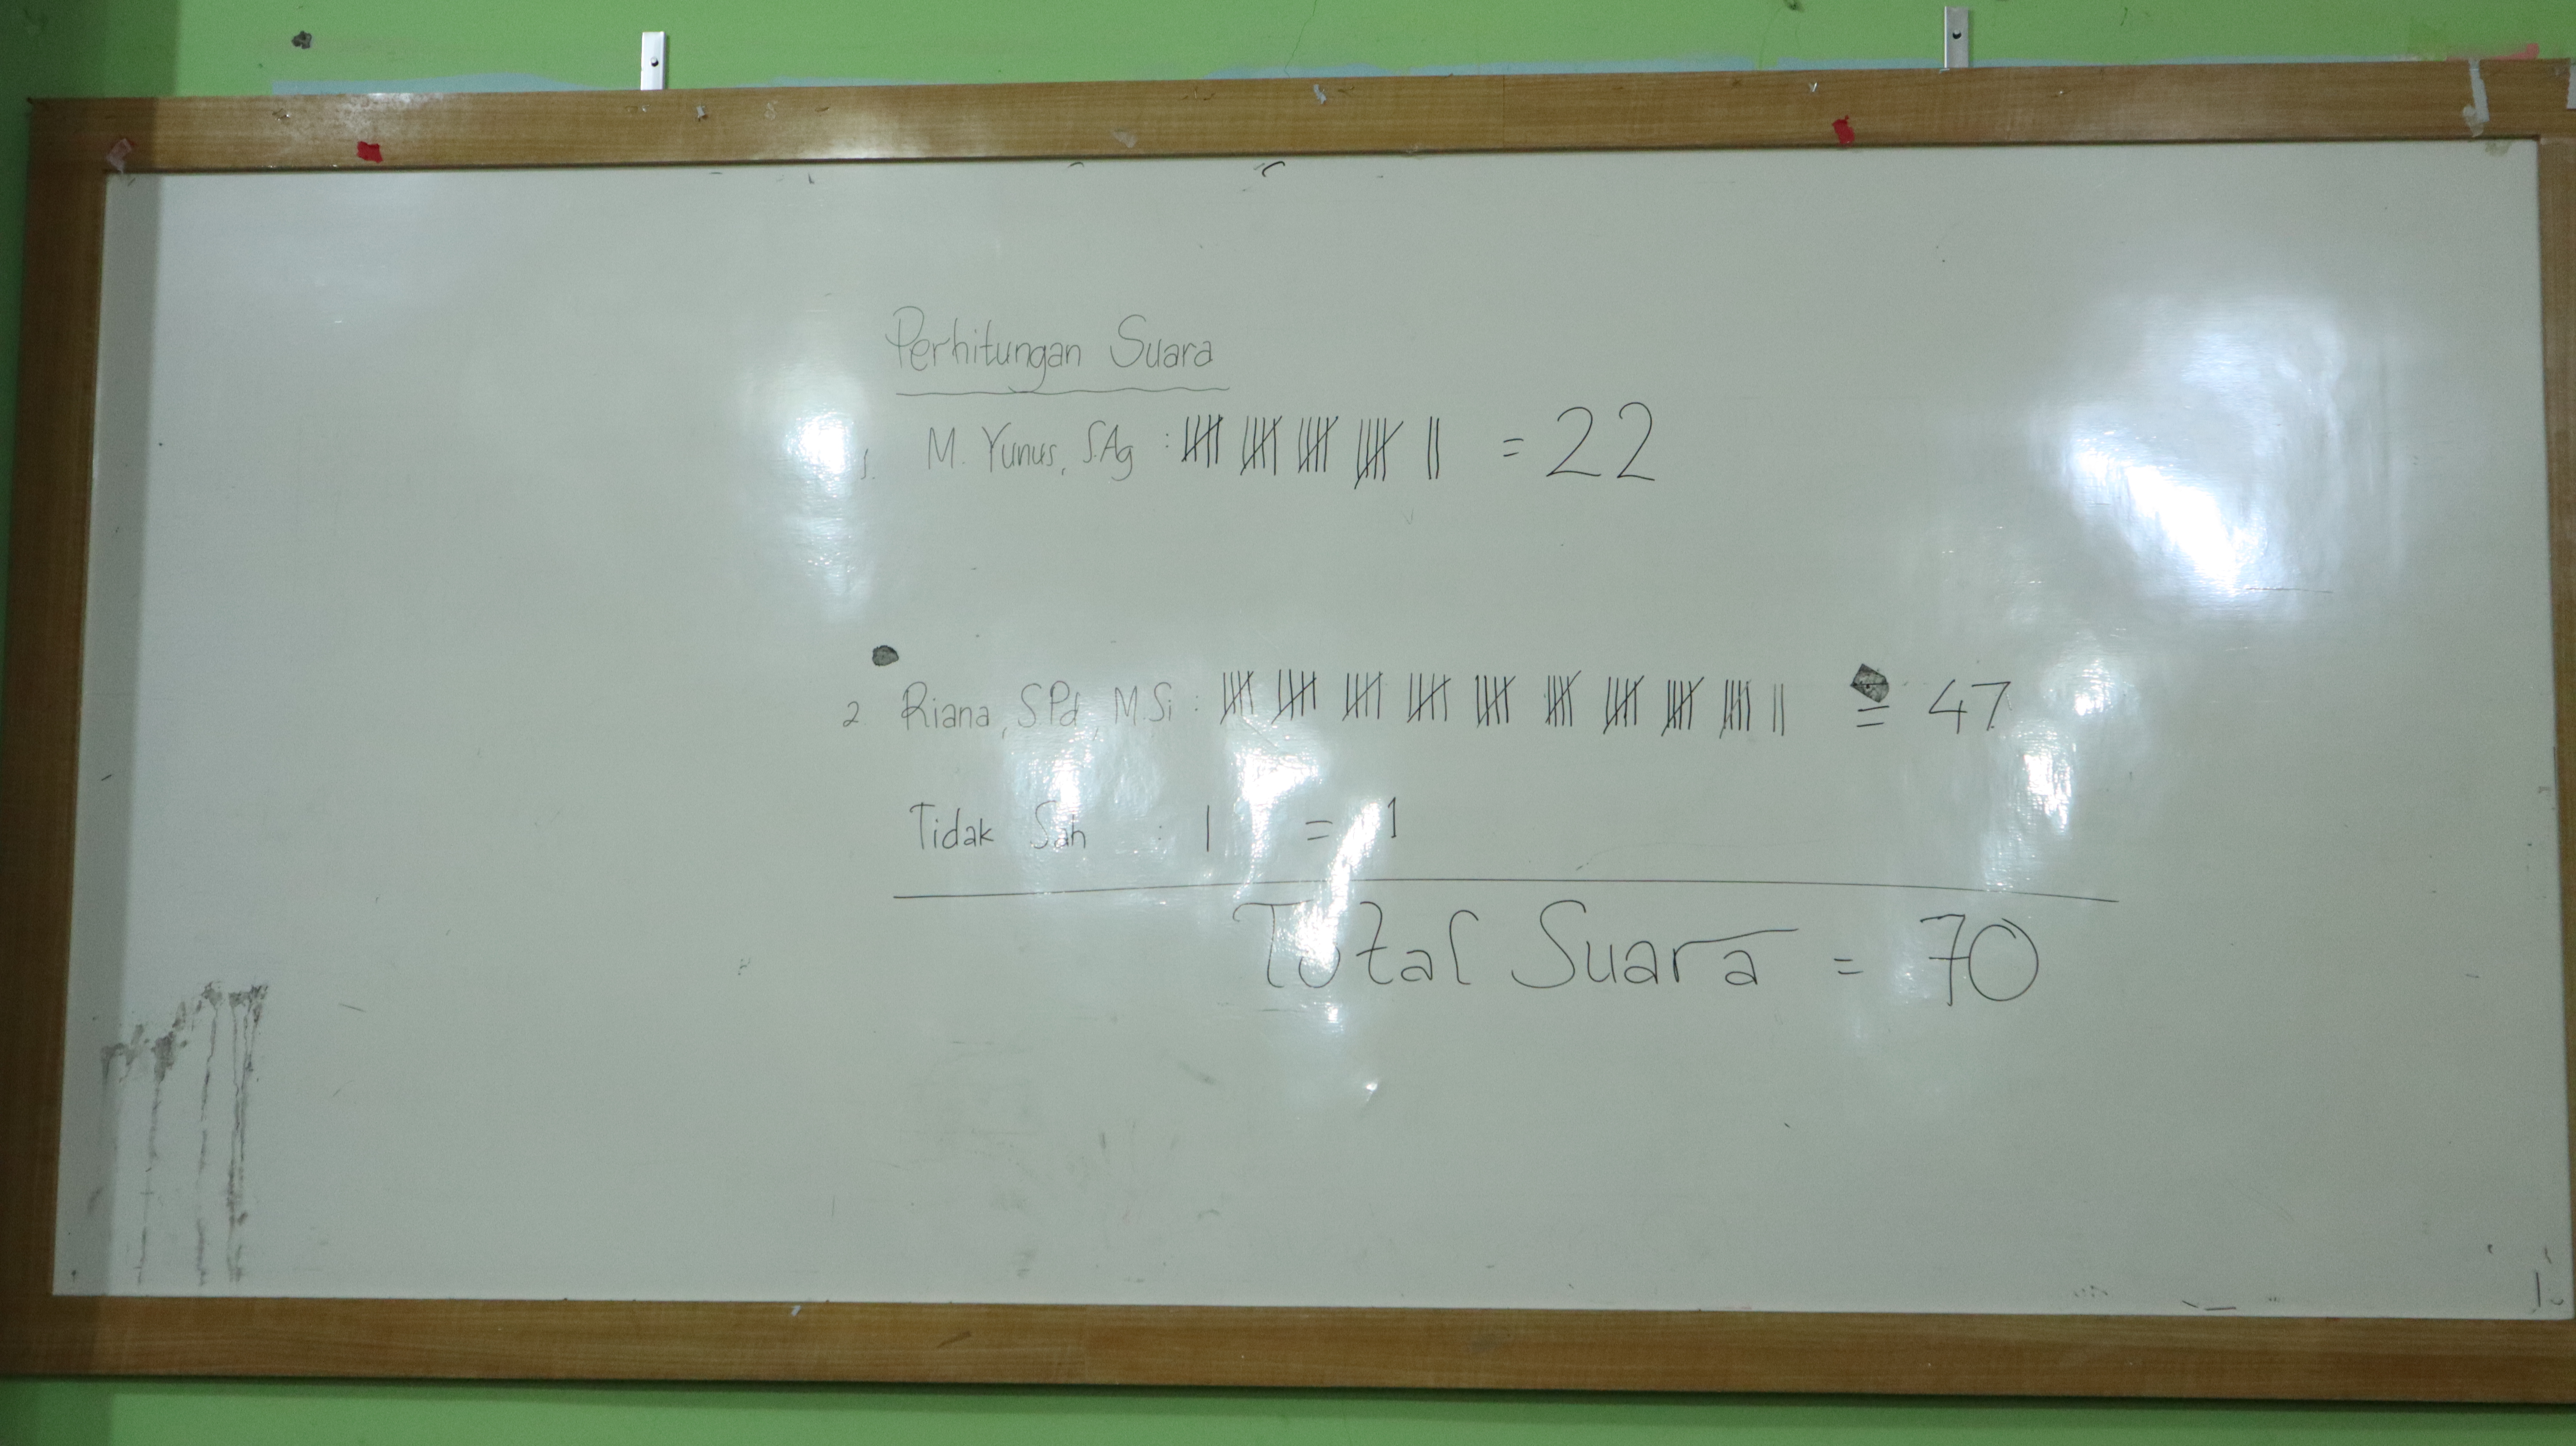 Perhitungan Suara
1. M. Yunus, S.Ag : 卌 卌 卌 卌 || = 22
2 Riana, SPd, M.Si : 卌 卌 卌 卌 卌 卌 卌 卌 卌 || = 47
Tidak Sah : | = 1
Total Suara = 70